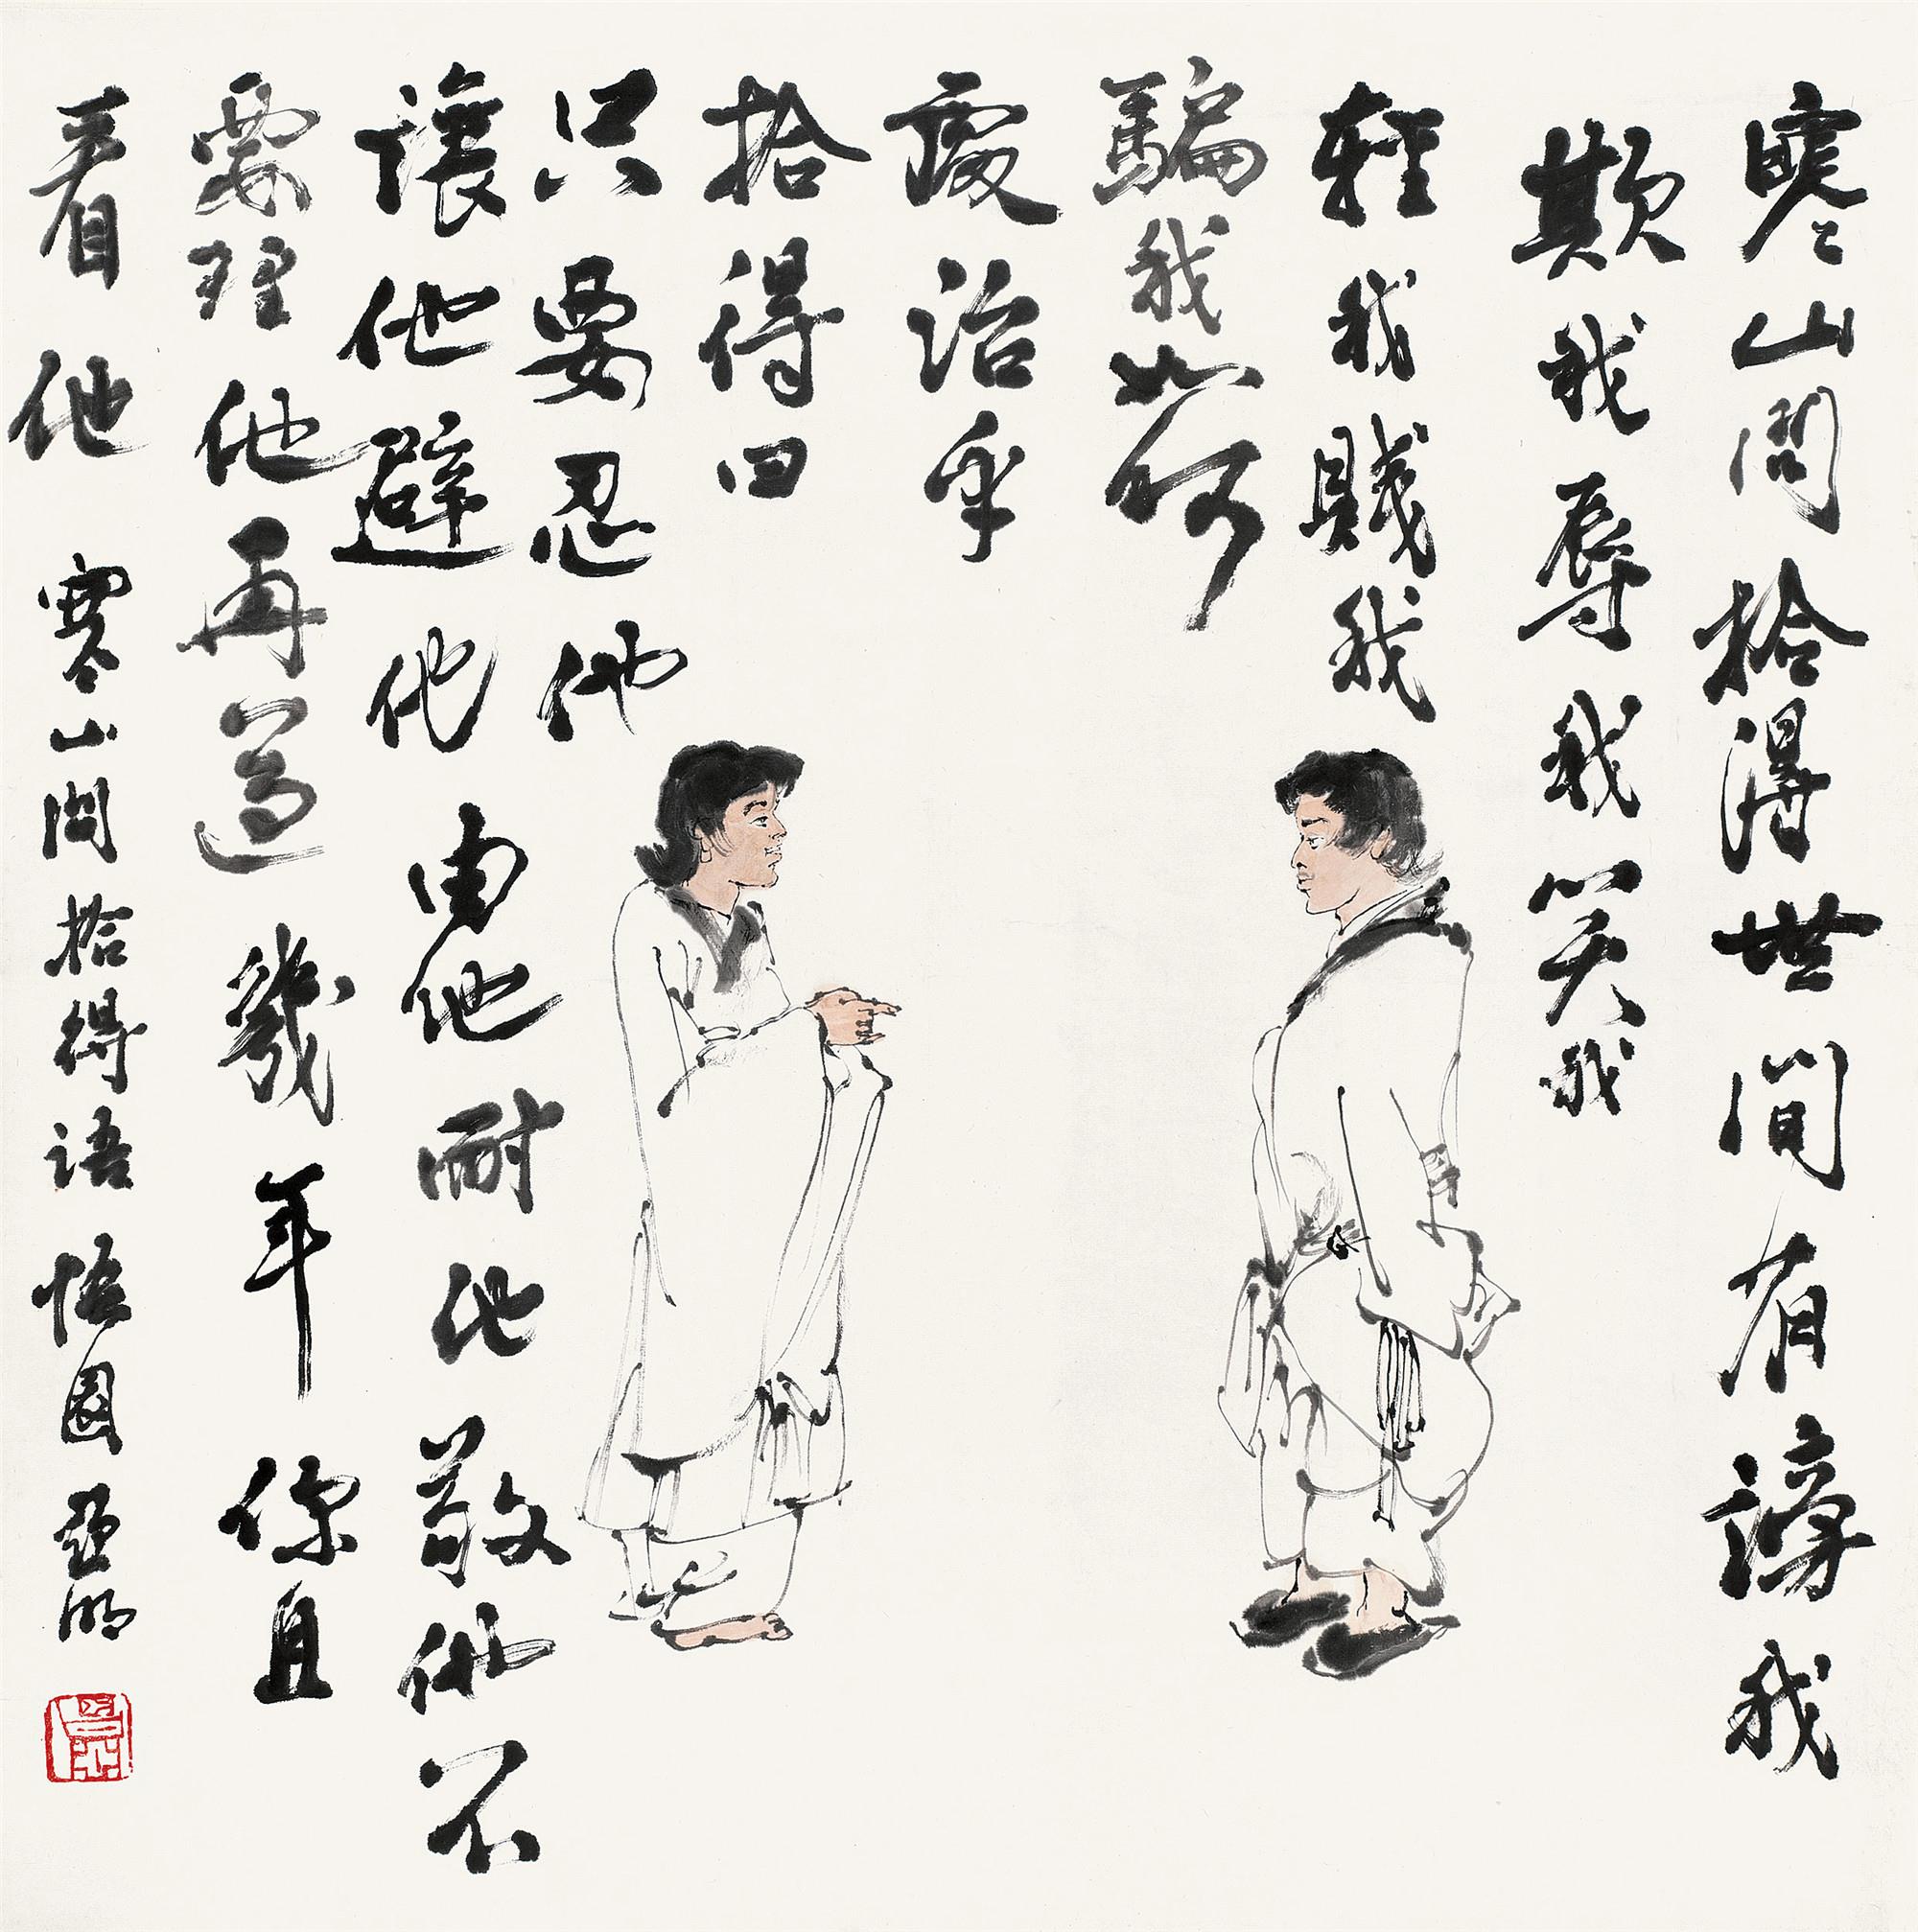 寒山問拾得世間有謗我
欺我辱我笑我
輕我賤我
騙我如何
處治乎
拾得曰
只要忍他
讓他避他由他耐他敬他不
要理他再過幾年你且
看他 寒山問拾得語 悟園亞明